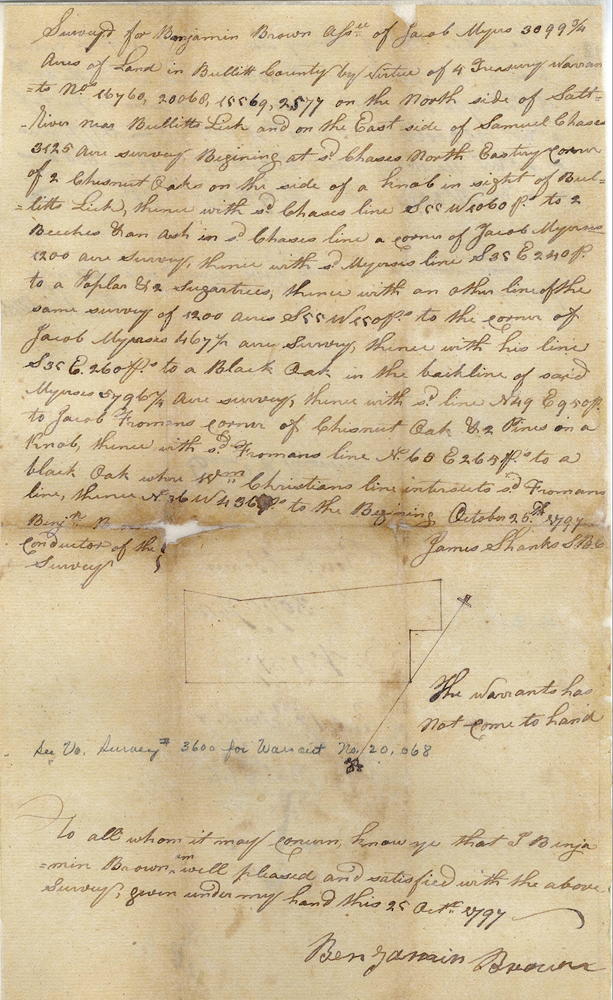 Survey'd for Benjamin Brown Assee of Jacob Myers 3099 3/4
Acres of Land in Bullitt County by Virtue of 4 Treasury Warran
=ts Nos 16760, 20068, 15569, 2577 on the North side of Salt=
-River near Bullitts Lick and on the East side of Samuel Chases
3125 acre survey, Begining at sd Chases North Easterly corner
of 2 Chesnut Oaks on the side of a knob in sight of Bul=
=litts Lick, thence with sd Chases line S55 W1060 ps to 2
Beeches & an Ash in sd Chases line a corner of Jacob Myerses
1200 acre survey, thence with sd Myerses line S35 E 240 ps
to a Poplar & 2 Sugartrees, thence with an other line of the
same survey of 1200 acres S55 W 550 ps to the corner of
Jacob Myerses acre survey, thence with his line
S35 E. 260 ps to a Black Oak in the backline of said
Myerses acre survey, thence with sd line N49 E 950 ps
to Jacob Fromans corner of Chesnut Oak & 2 Pines on a
Knob, thence with sd Fromans line N. 63 E 264 ps to a
black Oak where Wm Christians line intersects sd Fromans
line, thence N 36 W 436 ps to the Begining October 25th 1797
Benjn B
conductor of the
Survey
James Shanks S.B.C
The warrants has
not come to hand
See Vo. Survey # 3600 for Warrant No. 20,068
To all whom it may concern, know ye that I Benja
=min Brown am well pleased and satisfied with the above
Survey, given under my hand this 25 Octr 1797
Benjamin Brown